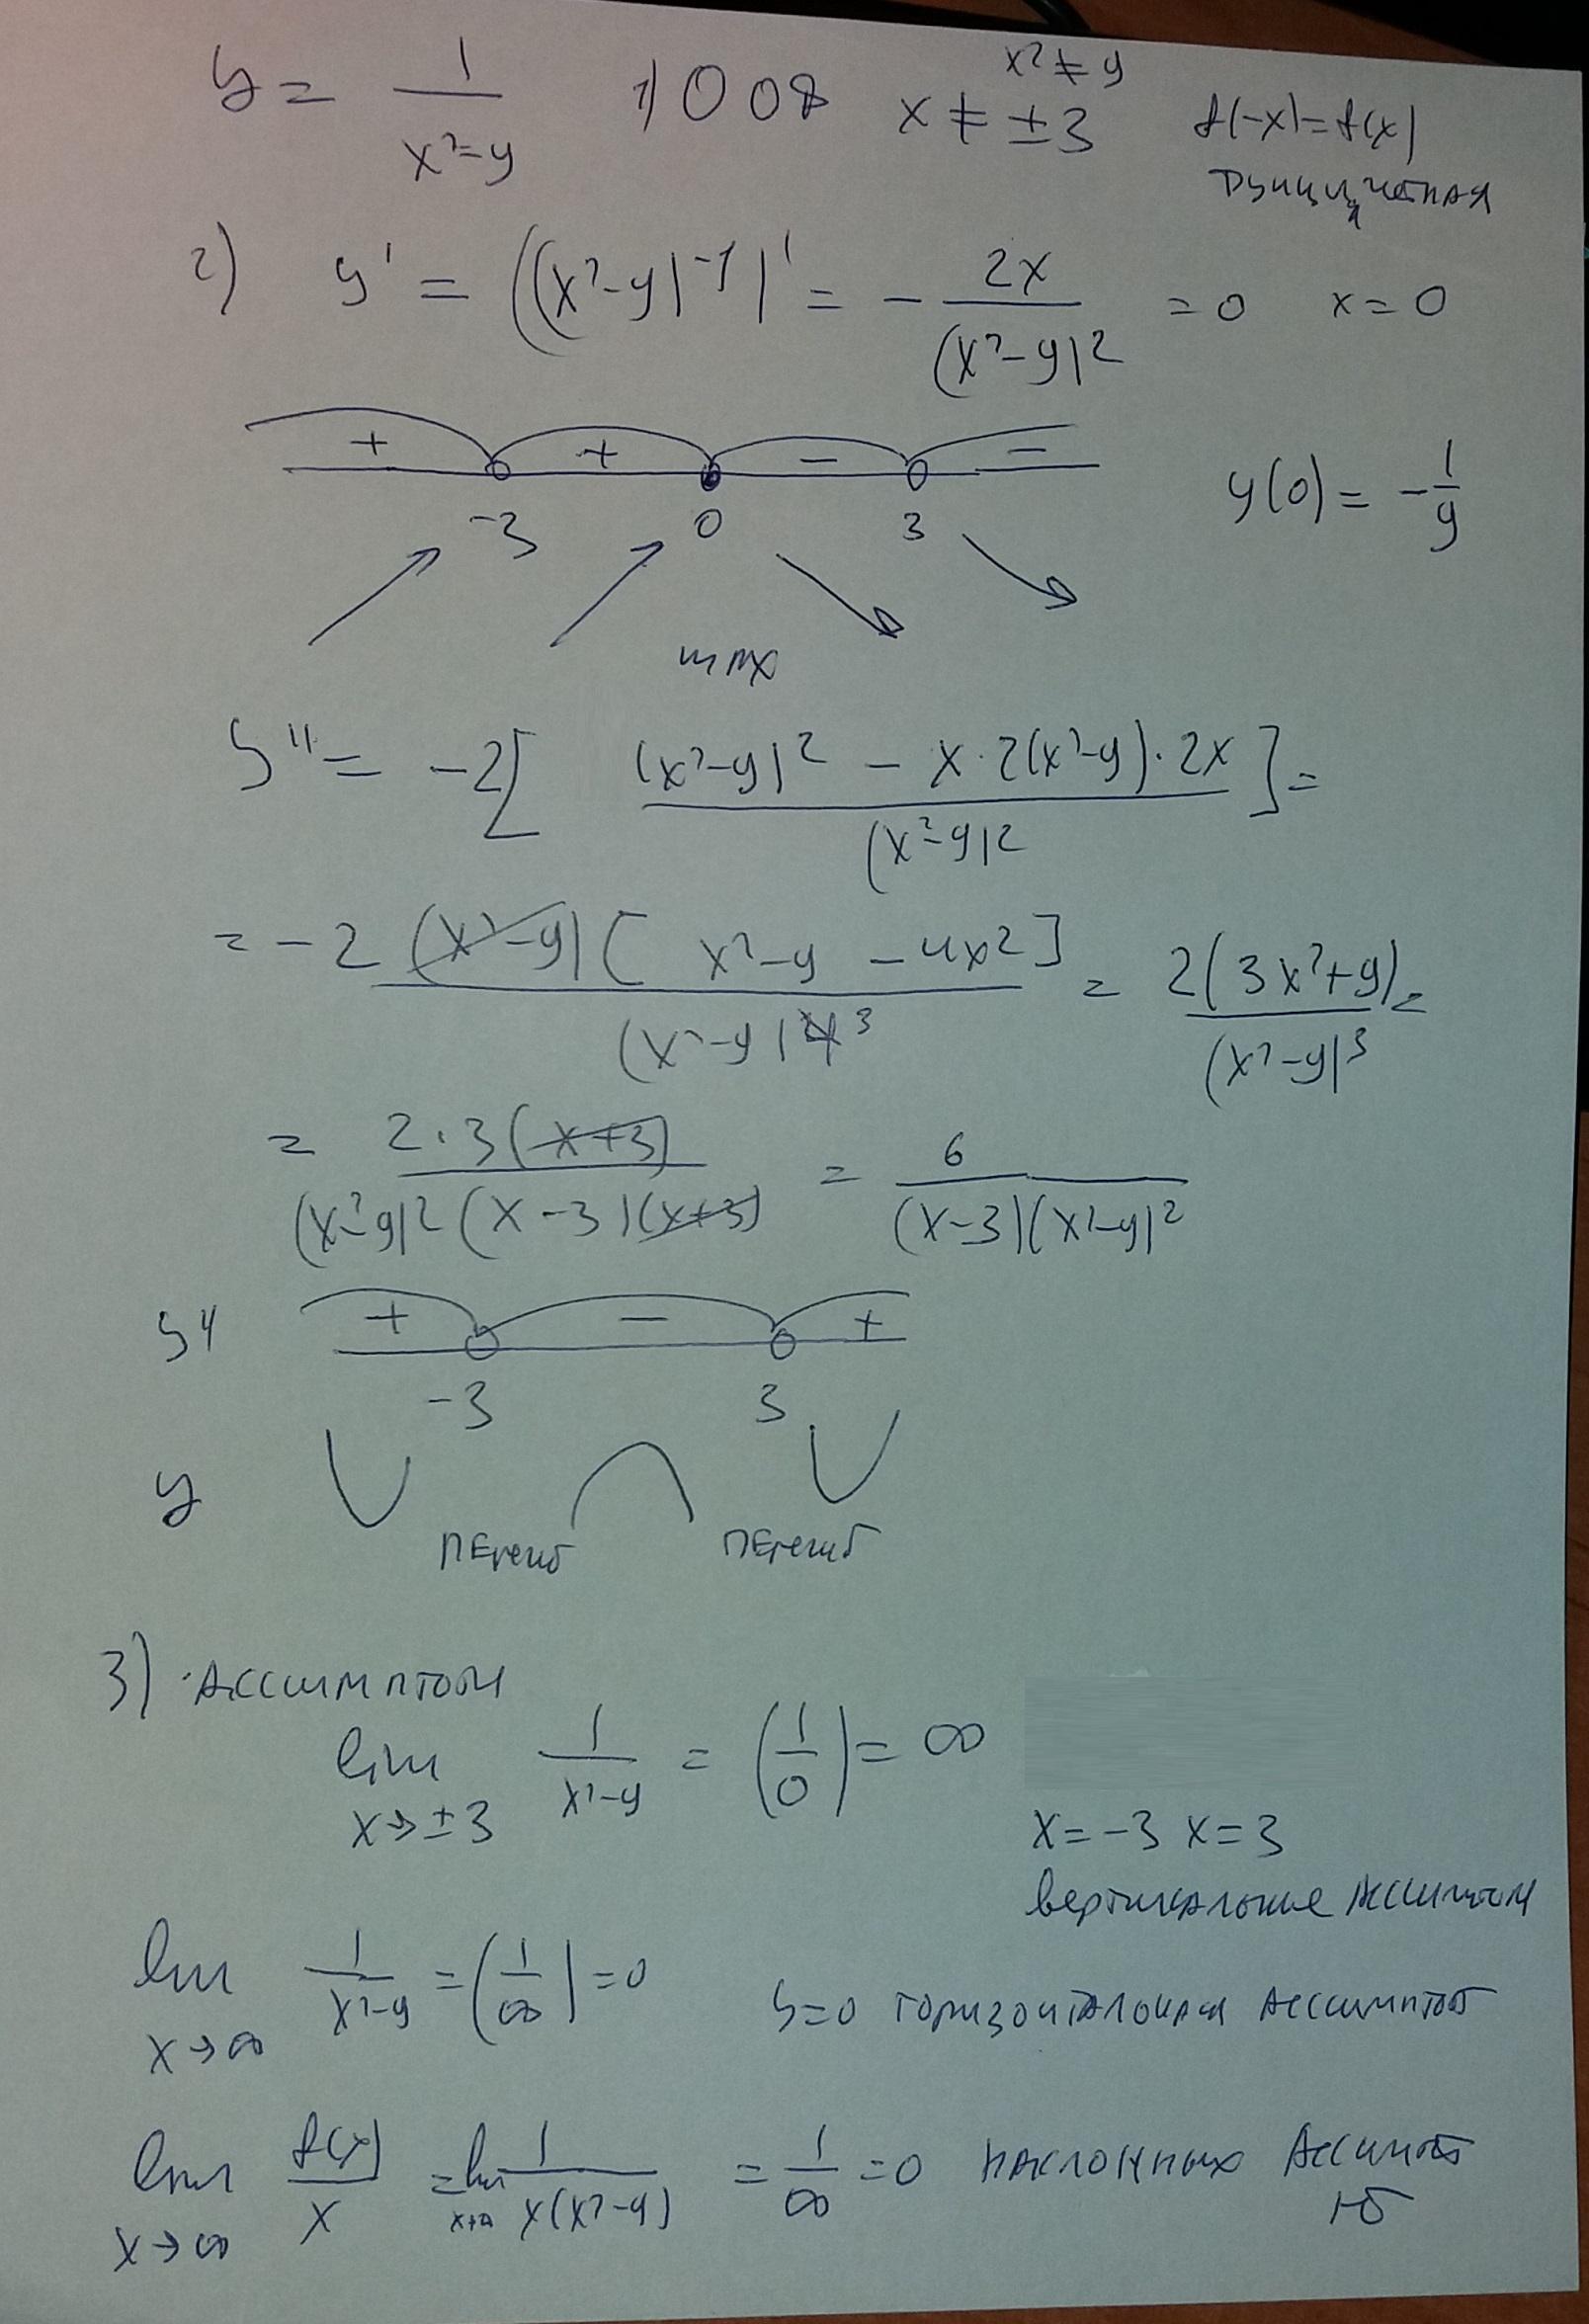 y = 1/(x²-9) 1) ООФ x² ≠ 9 x ≠ ±3 f(-x)=f(x)
функция четная
2) y' = ((x²-9)^-1)' = - 2x/(x²-9)² = 0 x = 0
+ + - -
-3 0 3 y(0) = -1/9
max
y'' = -2[ ((x²-9)² - x·2(x²-9)·2x)/(x²-9)² ] =
= -2 (x²-9)[ x²-9 - 4x² ]/(x²-9)^3 = 2(3x²+9)/(x²-9)³ =
= 2·3(x+3)/((x²-9)²(x-3)(x+3)) = 6/((x-3)(x²-9)²)
y'' + - +
-3 3
y перегиб перегиб
3) Ассимптоты
lim x→±3 1/(x²-9) = (1/0) = ∞
x=-3 x=3
вертикальные ассимптоты
lim x→∞ 1/(x²-9) = (1/∞) = 0 y=0 горизонтальная ассимптота
lim x→∞ f(x)/x = lim x→∞ 1/(x(x²-9)) = 1/∞ = 0 наклонных ассимптот